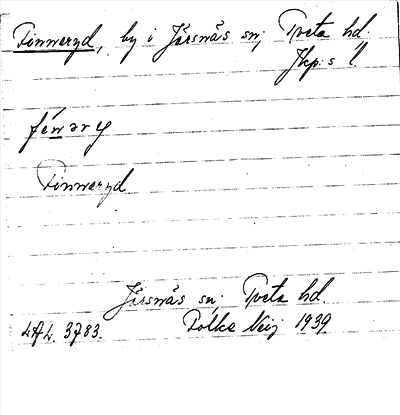 Finneryd, by i Järsnäs sn; Tveta hd.
Jkp:s l.
Finneryd
Järsnäs sn; Tveta hd.
L.A.L. 3783. Palke Neij 1939